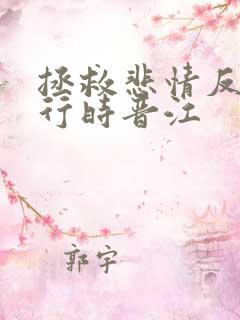 拯救悲情反
行時晋江
郭宇